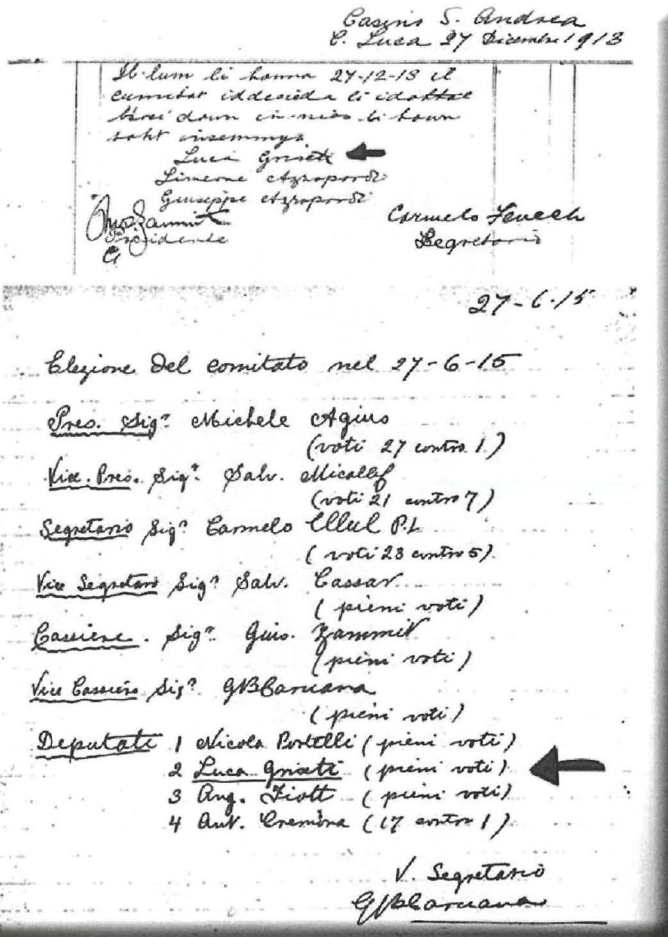 Casino S. Andrea
C. Luca 27 Dicembre 1913
Il lum li hauna 27-12-13 il
cumitat iddesieda li idahhal
down in-nies li haun
taht insemmu
Luca Griscti
Simeone Azzopardi
Giuseppe Azzopardi
Carmelo Fenech
Presidente
Segretario
27-6-15
Elezione del comitato nel 27-6-15
Pres. Sigr. Michele Agius
(voti 27 contro 1)
Vice. Pres. Sigr. Salv. Micallef
(voti 21 contro 7)
Segretario Sigr. Carmelo Ellul P.L
(voti 23 contro 5)
Vice Segretario Sigr. Salv. Cassar
(pieni voti)
Cassiere. Sigr. Gius. Zammit
(pieni voti)
Vice Cassiere Sigr. GBCaruana
(pieni voti)
Deputati 1 Nicola Portelli (pieni voti)
2 Luca Griscti (pieni voti)
3 Ang. (pieni voti)
4 Ant. Cremona (17 contro 1)
V. Segretario
GBCaruana